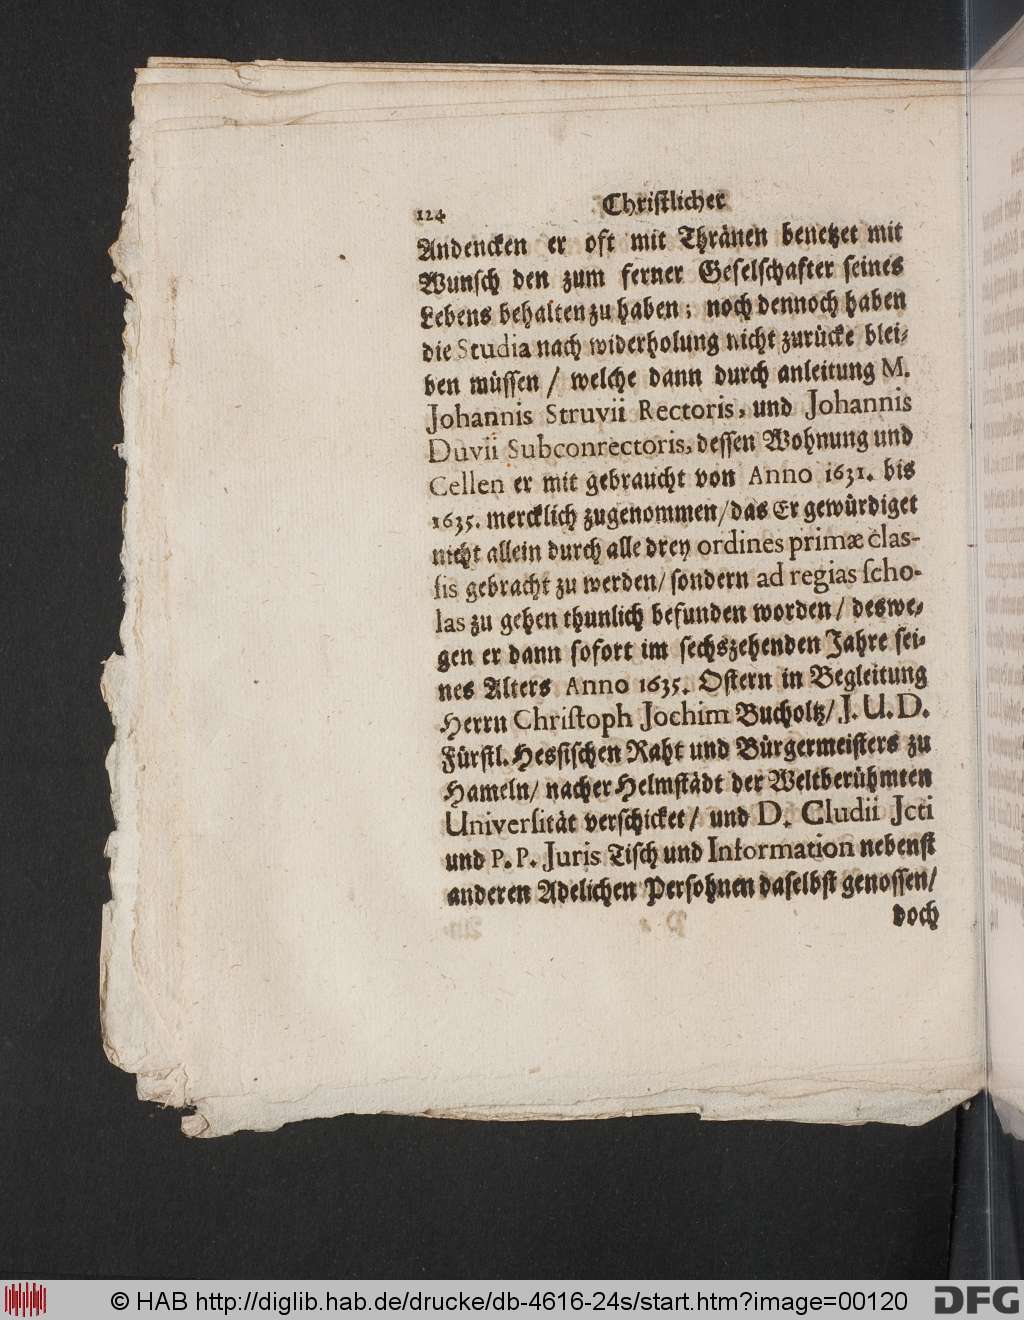 124 Chriſtlicher
Andencken er oft mit Thränen benetzet mit
Wunſch den zum ferner Geſelſchafter ſeines
Lebens behalten zu haben; noch dennoch haben
die Studia nach widerholung nicht zurücke blei-
ben müſſen / welche dann durch anleitung M.
Johannis Struvii Rectoris, und Johannis
Duvii Subconrectoris, deſſen Wohnung und
Cellen er mit gebraucht von Anno 1631. bis
1635. mercklich zugenommen / das Er gewürdiget
nicht allein durch alle drey ordines primæ claſ-
ſis gebracht zu werden / ſondern ad regias ſcho-
las zu gehen thunlich befunden worden / deswe-
gen er dann ſofort im ſechszehenden Jahre ſei-
nes Alters Anno 1635. Oſtern in Begleitung
Herrn Chriſtoph Jochim Bucholtz / J. U. D.
Fürſtl. Hesſiſchen Raht und Bürgermeiſters zu
Hameln / nacher Helmſtädt der Weltberühmten
Univerſität verſchicket / und D. Cludii Jcti
und P. P. Juris Tiſch und Information nebenſt
anderen Adelichen Perſohnen daſelbſt genoſſen /
doch
© HAB http://diglib.hab.de/drucke/db-4616-24s/start.htm?image=00120
DFG